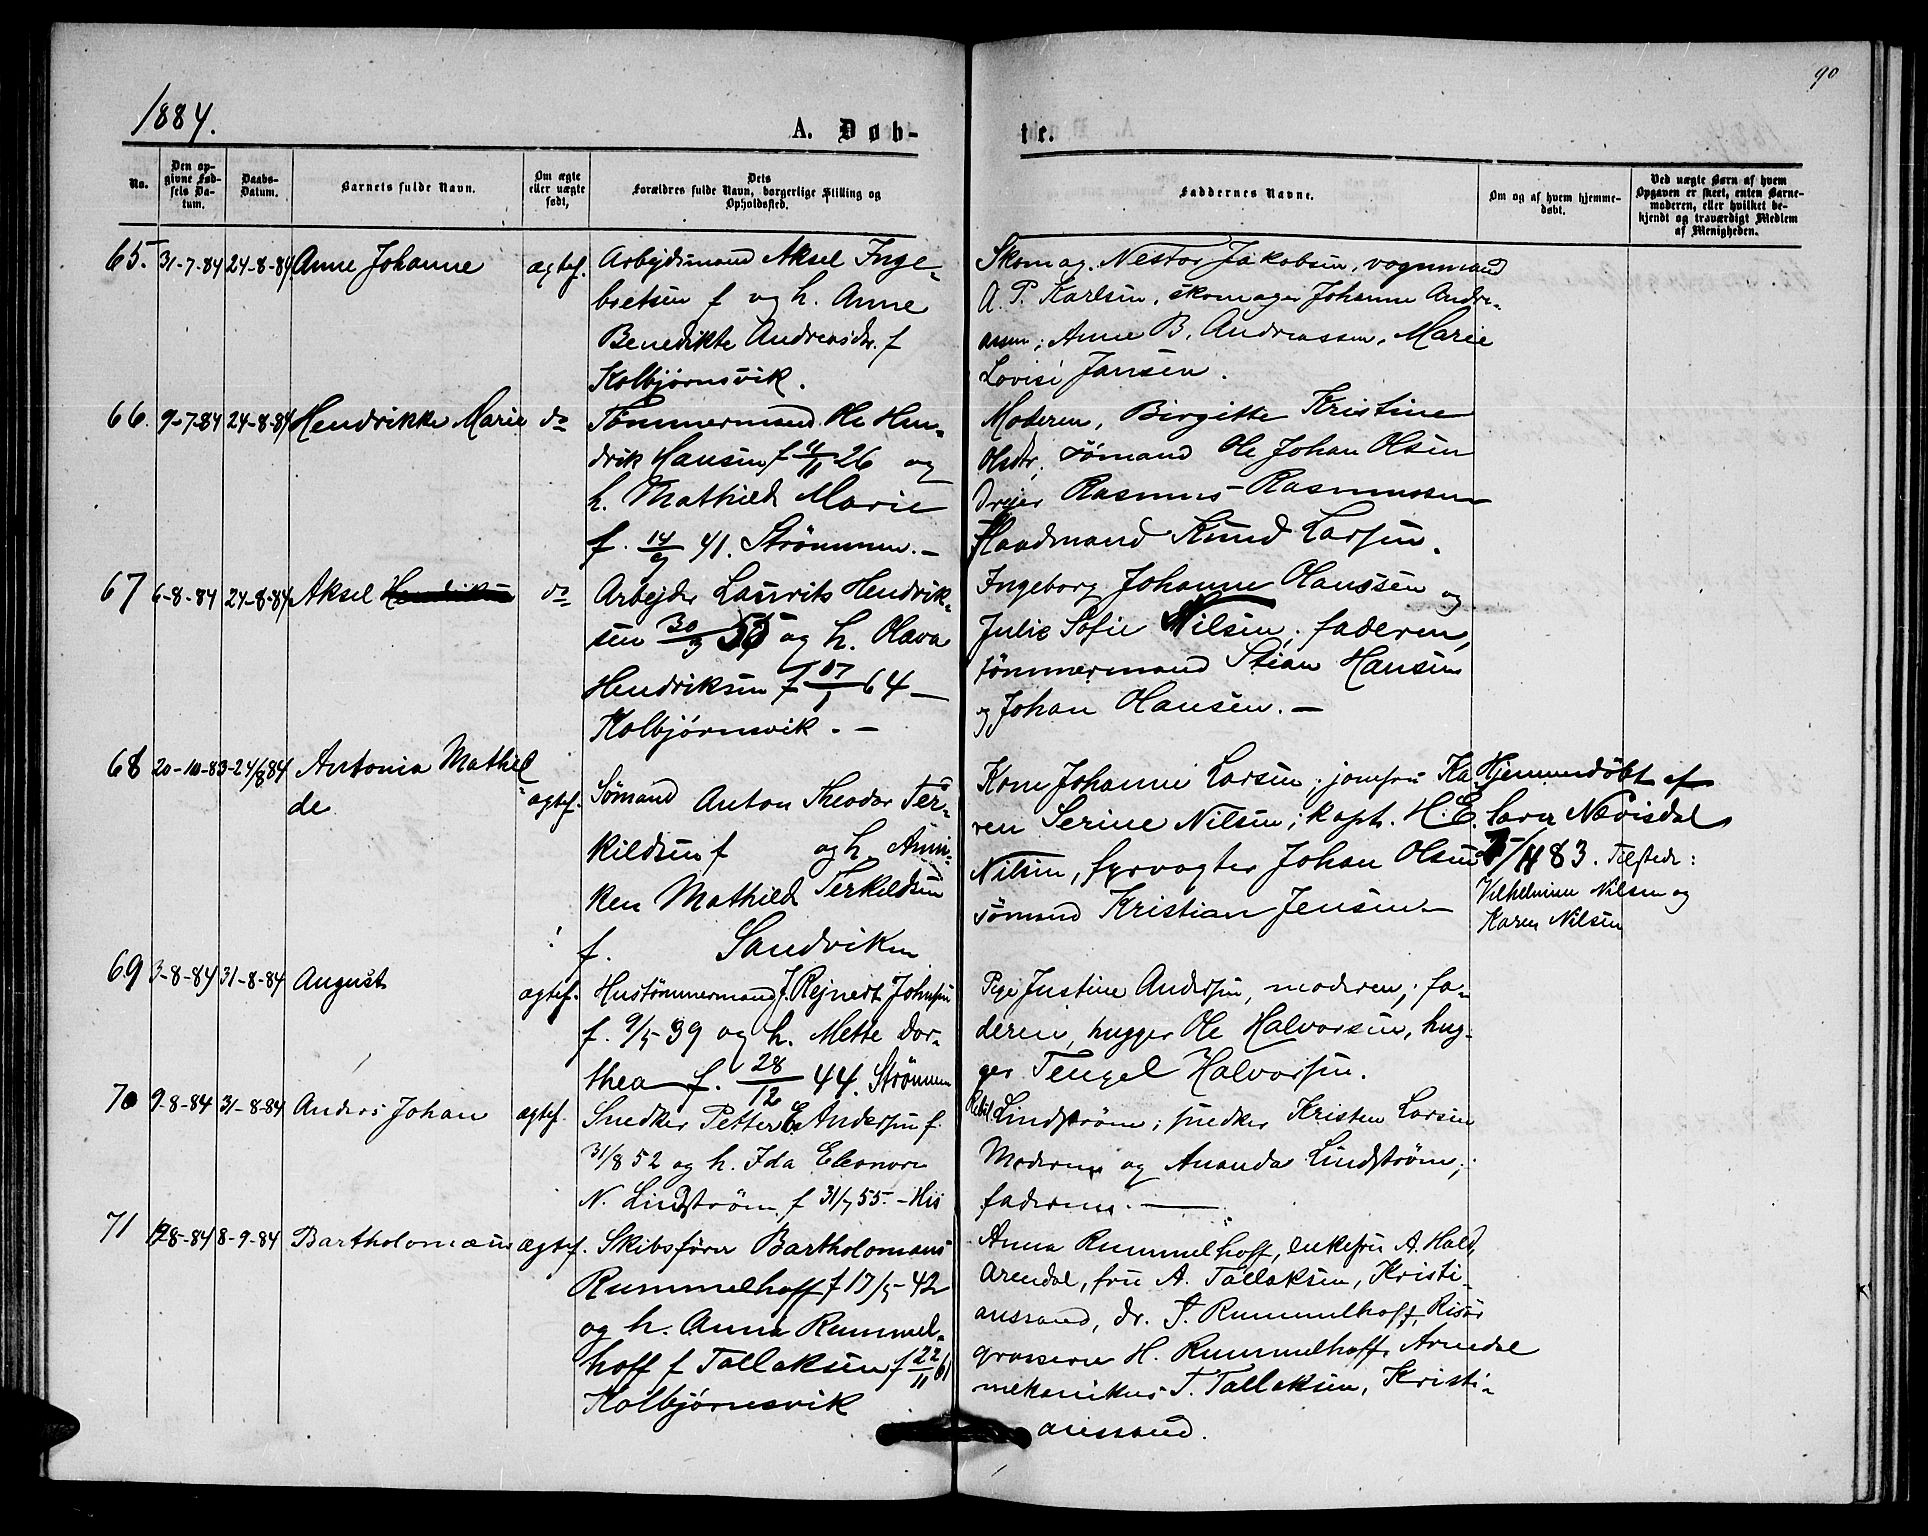 90
1884.
A. Døb-
te.
No.
Den op-
givne Fød-
sels Da-
tum.
Daabs-
Datum.
Barnets fulde Navn.
Om ægte
eller uægte
født,
Dets
Forældres fulde Navn, borgerlige Stilling og
Opholdssted.
Faddernes Navne.
Om og af hvem hjemme-
døbt.
Ved uægte Børn af hvem
Opgaven er skeet, enten Barne-
moderen, eller hvilket be-
kjendt og troværdigt Medlem
af Menigheden.
65. 31-7-84 24-8-84 Anne Johanne ægtef.
Arbejdsmand Aksel Inge-
bretsen f og h. Anne
Benedikte Andreasdtr. f
Kolbjørnsvik.
Skomag. Nestor Jakobsen, vognmand
A. P. Karlsen, skomager Johanne Andre-
asen; Anne B. Andreassen, Marie
Lovise Jansen.
66. 9-7-84 24-8-84 Hendrikke Marie do
Tømmermand Ole Hen-
drik Hansen f 11/11 26 og
h. Mathild Marie
f. 14/9 41. Strømmen. -
Moderen, Birgitte Kristine
Olsdtr. sømand Ole Johan Olsen
Drejer Rasmus Rasmussen
Knud Larsen.
67 6-8-84 24-8-84 Aksel do
Arbejder Laurits Hendrik-
sen 30/3 55 og h. Olava
Hendriksen f 17/1 64 -
Kolbjørnsvik. -
Ingeborg Johanne Hanssen og
Julie Sofie Nilsen; faderen,
tømmermand Stian Hansen
og Johan Hansen. -
68 20-10-83 24/8 84 Antonia Mathil
de
ægtef.
Sømand Anton Theodor Ter-
kildsen f og h. Anni-
ken Mathild Terkildsen
f. Sandviken
Kone Johanne Larsen; jomfru Ka-
ren Serine Nilsen; kapt. H. E.
Nilsen, fyrvogter Johan Olsen
sømand Kristian Jensen -
Hjemmedøbt af
lærer Nævisdal
/11 83. Tilstede:
Vilhelmine Nilsen og
Karen Nilsen
69 3-8-84 31-8-84 August ægtef.
Hustømmermand J. Rejnert Johnsen
f. 9/5 39 og h. Mette Dor-
thea f. 28/12 44. Strømmen
Pige Justine Andersen, moderen; fa-
deren, hugger Ole Halvorsen, hug-
ger Tengel Halvorsen.
70 9-8-84 31-8-84 Anders Johan ægtef.
Snedker Petter E. Andersen f.
31/8 52 og h. Ida Eleonore
N. Lindstrøm f 31/7 55. - His
Lindstrøm; snedker Kristen Larsen
Moderen og Ananda Lindstrøm;
faderen. -
71 8-84 8-9-84 Bartholomæus ægtef.
Skibsfører Bartholomæus
Rummelhoff f 17/5 - 42
og h. Anna Rummel-
hoff f Tallaksen f 22/11 61
Kolbjørnsvik
Anna Rummelhoff, enkefru A. Hald,
Arendal, fru A. Tallaksen, Kristi-
anssand, dr. S. Rummelhoff, Risør
grosserer H. Rummelhoff, Arendal
mekanikus T. Tallaksen, Kristi-
anssand.